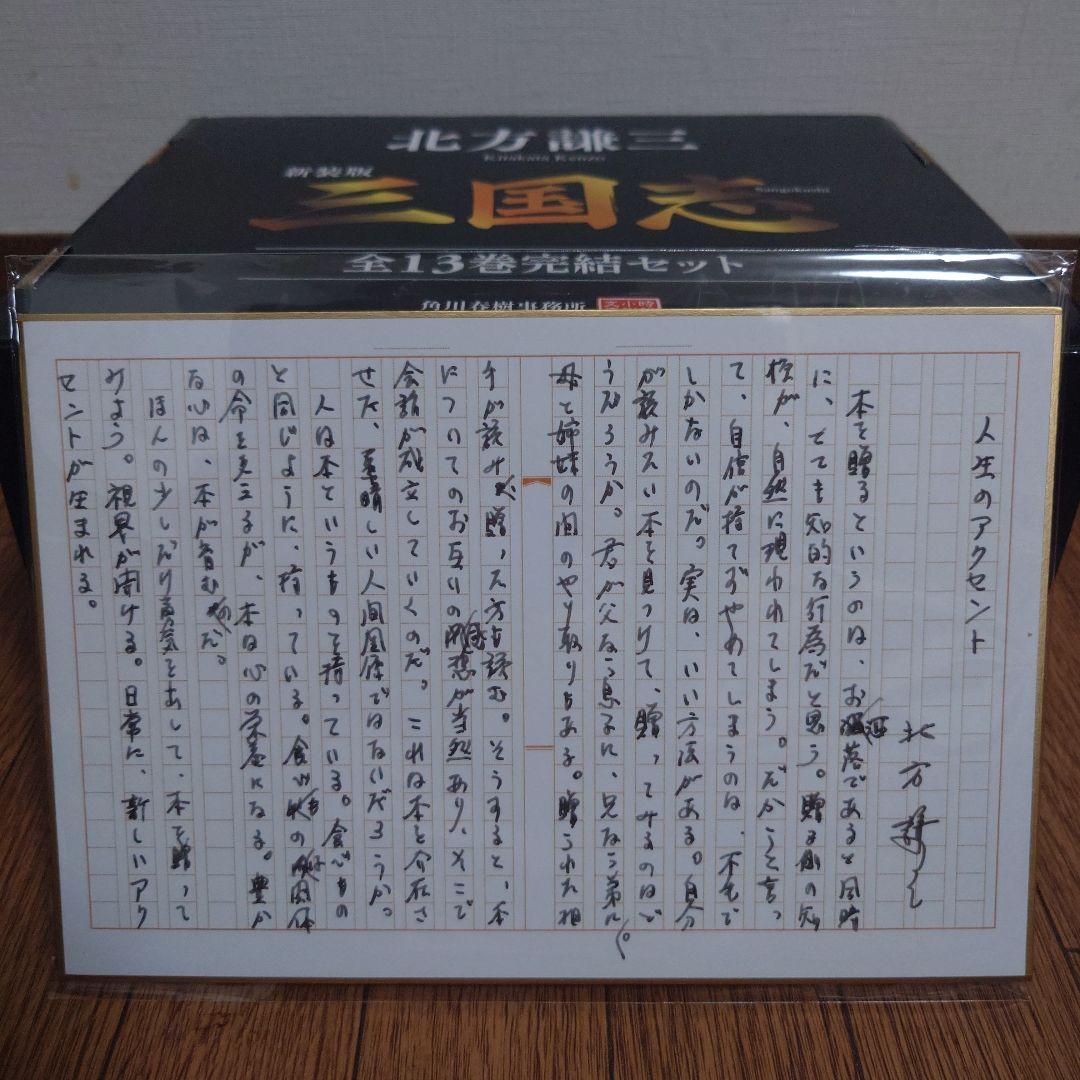 北方謙三
Kitakata Kenzo
新装版
三国志
Sangokushi
全13巻完結セット
角川春樹事務所
人生のアクセント
北方謙三
本を贈るというのは、お洒落であると同時
に、とても知的な行為だと思う。贈る側の知
性が、自然に現われてしまう。だからと言っ
て、自信が持てずやめてしまうのは、不毛で
しかないのだ。実は、いい方法がある。自分
が読みたい本を見つけて、贈ってみるのはど
うだろうか。君が父なら息子に、兄なら弟に。
母と姉妹の間のやり取りもある。贈られた相
手が読み、贈った方も読む。そうすると、本
についてのお互いの感想が当然あり、そこで
会話が成立していくのだ。これは本を介在さ
せた、素晴しい人間関係ではないだろうか。
人は本というものを持っている。食べもの
と同じように、持っている。食べものは肉体
の命を支えるが、本は心の栄養になる。豊か
な心は、本が育むのだ。
ほんの少しだけ勇気を出して、本を贈って
みよう。視界が開ける。日常に、新しいアク
セントが生まれる。